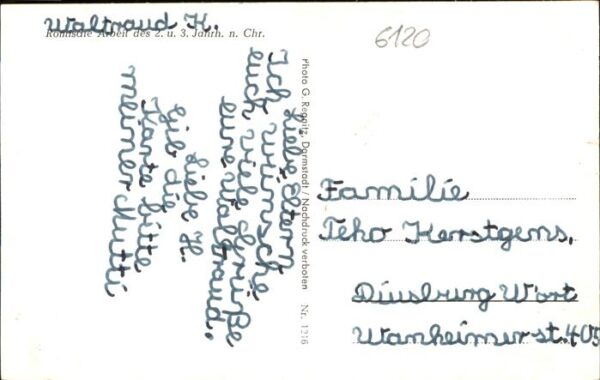 Waltraud K.
Römische Arbeit des 2. u. 3. Jahrh. n. Chr.
6120
Liebe Eltern
Ich wünsche
euch viele Grüße
eure Waltraud.
Liebe H.
Gib die
Karte bitte
meiner Mutti
Photo G. Regnitz, Darmstadt / Nachdruck verboten Nr. 1216
Familie
Teho Kerstgens.
Diusburg Wort
Wanheimerst. 405